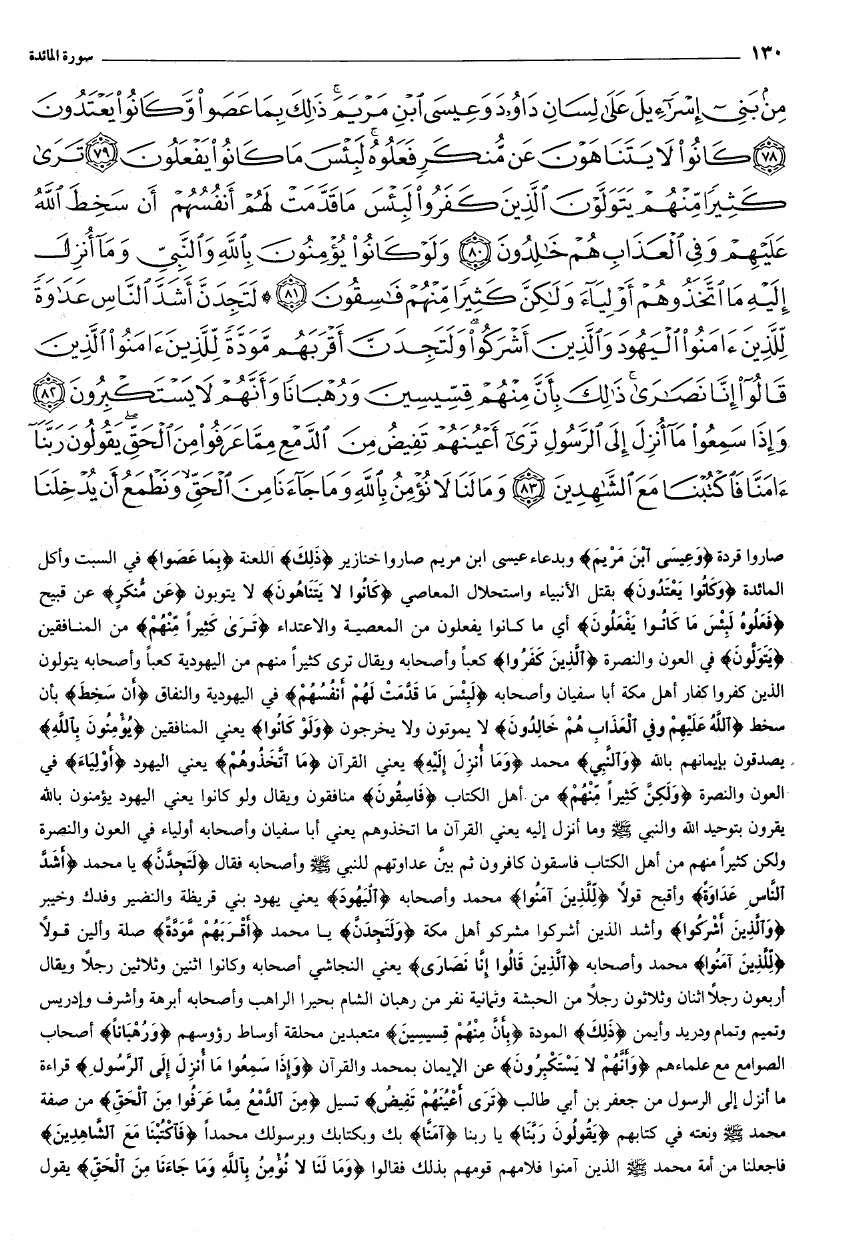 ١٣٠ سورة المائدة
مِنۢ بَنِىٓ إِسْرَٰٓءِيلَ عَلَىٰ لِسَانِ دَاوُۥدَ وَعِيسَى ٱبْنِ مَرْيَمَ ۚ ذَٰلِكَ بِمَا عَصَوا۟ وَّكَانُوا۟ يَعْتَدُونَ
﴿٧٨﴾ كَانُوا۟ لَا يَتَنَاهَوْنَ عَن مُّنكَرٍ فَعَلُوهُ ۚ لَبِئْسَ مَا كَانُوا۟ يَفْعَلُونَ ﴿٧٩﴾ تَرَىٰ
كَثِيرًا مِّنْهُمْ يَتَوَلَّوْنَ ٱلَّذِينَ كَفَرُوا۟ ۚ لَبِئْسَ مَا قَدَّمَتْ لَهُمْ أَنفُسُهُمْ أَن سَخِطَ ٱللَّهُ
عَلَيْهِمْ وَفِى ٱلْعَذَابِ هُمْ خَٰلِدُونَ ﴿٨٠﴾ وَلَوْ كَانُوا۟ يُؤْمِنُونَ بِٱللَّهِ وَٱلنَّبِىِّ وَمَآ أُنزِلَ
إِلَيْهِ مَا ٱتَّخَذُوهُمْ أَوْلِيَآءَ وَلَٰكِنَّ كَثِيرًا مِّنْهُمْ فَٰسِقُونَ ﴿٨١﴾ ۞ لَتَجِدَنَّ أَشَدَّ ٱلنَّاسِ عَدَٰوَةً
لِّلَّذِينَ ءَامَنُوا۟ ٱلْيَهُودَ وَٱلَّذِينَ أَشْرَكُوا۟ ۖ وَلَتَجِدَنَّ أَقْرَبَهُم مَّوَدَّةً لِّلَّذِينَ ءَامَنُوا۟ ٱلَّذِينَ
قَالُوٓا۟ إِنَّا نَصَٰرَىٰ ۚ ذَٰلِكَ بِأَنَّ مِنْهُمْ قِسِّيسِينَ وَرُهْبَانًا وَأَنَّهُمْ لَا يَسْتَكْبِرُونَ ﴿٨٢﴾
وَإِذَا سَمِعُوا۟ مَآ أُنزِلَ إِلَى ٱلرَّسُولِ تَرَىٰٓ أَعْيُنَهُمْ تَفِيضُ مِنَ ٱلدَّمْعِ مِمَّا عَرَفُوا۟ مِنَ ٱلْحَقِّ ۖ يَقُولُونَ رَبَّنَآ
ءَامَنَّا فَٱكْتُبْنَا مَعَ ٱلشَّٰهِدِينَ ﴿٨٣﴾ وَمَا لَنَا لَا نُؤْمِنُ بِٱللَّهِ وَمَا جَآءَنَا مِنَ ٱلْحَقِّ وَنَطْمَعُ أَن يُدْخِلَنَا
صاروا قردة ﴿وَعِيسَى ٱبْنِ مَرْيَمَ﴾ وبدعاء عيسى ابن مريم صاروا خنازير ﴿ذَلِكَ﴾ اللعنة ﴿بِمَا عَصَوا﴾ في السبت وأكل
المائدة ﴿وَكَانُوا يَعْتَدُونَ﴾ بقتل الأنبياء واستحلال المعاصي ﴿كَانُوا لَا يَتَنَاهُونَ﴾ لا يتوبون ﴿عَن مُّنكَرٍ﴾ عن قبيح
﴿فَعَلُوهُ لَبِئْسَ مَا كَانُوا يَفْعَلُونَ﴾ أي ما كانوا يفعلون من المعصية والاعتداء ﴿تَرَىٰ كَثِيراً مِّنْهُمْ﴾ من المنافقين
﴿يَتَوَلَّونَ﴾ في العون والنصرة ﴿ٱلَّذِينَ كَفَرُوا﴾ كعباً وأصحابه ويقال ترى كثيراً منهم من اليهودية كعباً وأصحابه يتولون
الذين كفروا كفار أهل مكة أبا سفيان وأصحابه ﴿لَبِئْسَ مَا قَدَّمَتْ لَهُمْ أَنْفُسُهُمْ﴾ في اليهودية والنفاق ﴿أَن سَخِطَ﴾ بأن
سخط ﴿ٱللَّهُ عَلَيْهِمْ وفِي ٱلْعَذَابِ هُمْ خَالِدُونَ﴾ لا يموتون ولا يخرجون ﴿وَلَوْ كَانُوا﴾ يعني المنافقين ﴿يُؤْمِنُونَ بِٱللَّهِ﴾
يصدقون بإيمانهم بالله ﴿وَٱلنَّبِي﴾ محمد ﴿وَمَا أُنزِلَ إِلَيْهِ﴾ يعني القرآن ﴿مَا ٱتَّخَذُوهُمْ﴾ يعني اليهود ﴿أَوْلِيَاءَ﴾ في
العون والنصرة ﴿وَلَكِنَّ كَثِيراً مِّنْهُمْ﴾ من أهل الكتاب ﴿فَاسِقُونَ﴾ منافقون ويقال ولو كانوا يعني اليهود يؤمنون بالله
يقرون بتوحيد الله والنبي ﷺ وما أنزل إليه يعني القرآن ما اتخذوهم يعني أبا سفيان وأصحابه أولياء في العون والنصرة
ولكن كثيراً منهم من أهل الكتاب فاسقون كافرون ثم بيَّن عداوتهم للنبي ﷺ وأصحابه فقال ﴿لَتَجِدَّنَّ﴾ يا محمد ﴿أَشَدَّ
ٱلنَّاسِ عَدَاوَةً﴾ وأقبح قولاً ﴿لِّلَّذِينَ آمَنُوا﴾ محمد وأصحابه ﴿ٱلْيَهُودَ﴾ يعني يهود بني قريظة والنضير وفدك وخيبر
﴿وَٱلَّذِينَ أَشْرَكُوا﴾ وأشد الذين أشركوا مشركو أهل مكة ﴿وَلَتَجِدَنَّ﴾ يا محمد ﴿أَقْرَبَهُمْ مَّوَدَّةً﴾ صلة وألين قولاً
﴿لِّلَّذِينَ آمَنُوا﴾ محمد وأصحابه ﴿ٱلَّذِينَ قَالُوا إِنَّا نَصَارَى﴾ يعني النجاشي أصحابه وكانوا اثنين وثلاثين رجلاً ويقال
أربعون رجلاً اثنان وثلاثون رجلاً من الحبشة وثمانية نفر من رهبان الشام بحيرا الراهب وأصحابه أبرهة وأشرف وإدريس
وتميم وتمام ودريد وأيمن ﴿ذَلِكَ﴾ المودة ﴿بِأَنَّ مِنْهُمْ قِسيسِينَ﴾ متعبدين محلقة أوساط رؤوسهم ﴿وَرُهْبَاناً﴾ أصحاب
الصوامع مع علماءهم ﴿وَأَنَّهُمْ لَا يَسْتَكْبِرُونَ﴾ عن الإيمان بمحمد والقرآن ﴿وَإِذَا سَمِعُوا مَا أُنزِلَ إِلَى ٱلرَّسُولِ﴾ قراءة
ما أنزل إلى الرسول من جعفر بن أبي طالب ﴿تَرَى أَعْيُنَهُمْ تَفِيضُ﴾ تسيل ﴿مِنَ ٱلدَّمْعُ مِمَّا عَرَفُوا مِنَ ٱلْحَقِّ﴾ من صفة
محمد ﷺ ونعته في كتابهم ﴿يَقُولُونَ رَبَّنَا﴾ يا ربنا ﴿آمَنَّا﴾ بك وبكتابك وبرسولك محمداً ﴿فَٱكْتُبْنَا مَعَ ٱلشَّاهِدِينَ﴾
فاجعلنا من أمة محمد ﷺ الذين آمنوا فلامهم قومهم بذلك فقالوا ﴿وَمَا لَنَا لَا نُؤْمِنُ بِٱللَّهِ وَمَا جَاءَنَا مِنَ ٱلْحَقِّ﴾ يقول